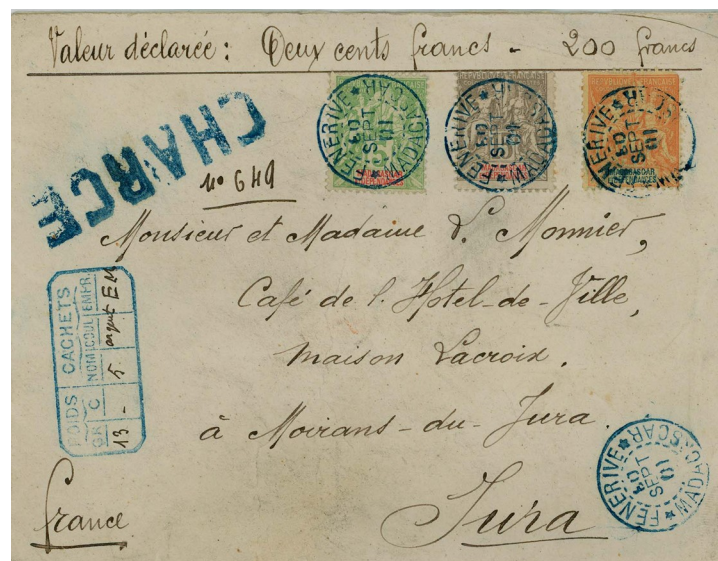 Valeur déclarée : Deux cents francs - 200 francs
FENERIVE
MADAGASCAR
SEPT
01
FENERIVE
MADAGASCAR
SEPT
01
FENERIVE
SEPT
01
CHARGE
No 649
Monsieur et Madame L. Monnier,
Café de l'Hotel-de-Ville,
maison Lacroix.
à Moirans-du-Jura.
Jura
France
POIDS CACHETS
GR C NOM COUL EMPR.
13 - 5 argent EM
FENERIVE
MADAGASCAR
SEPT
01